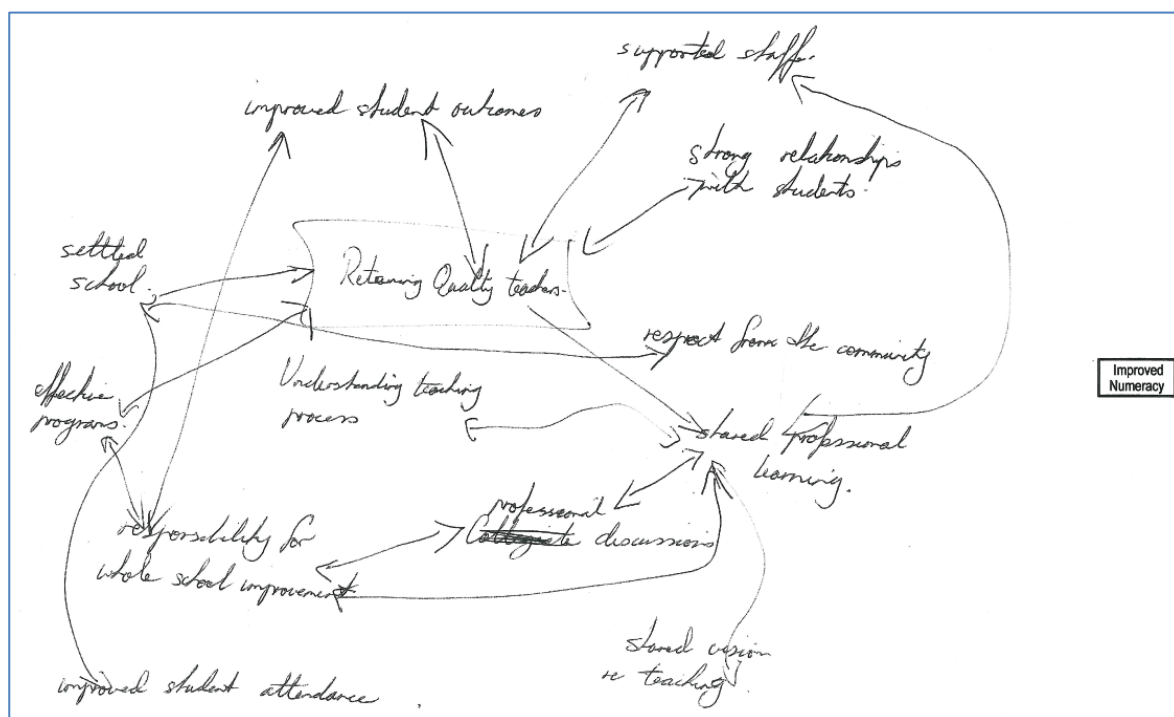 supported staff.
improved student outcomes
strong relationships
with students.
settled
school.
Retaining Quality teachers.
respect from the community
Improved
Numeracy
effective
programs.
Understanding teaching
process
shared professional
learning.
professional
Collegiate discussions
responsibility for
whole school improvement.
shared vision
re teaching
improved student attendance.